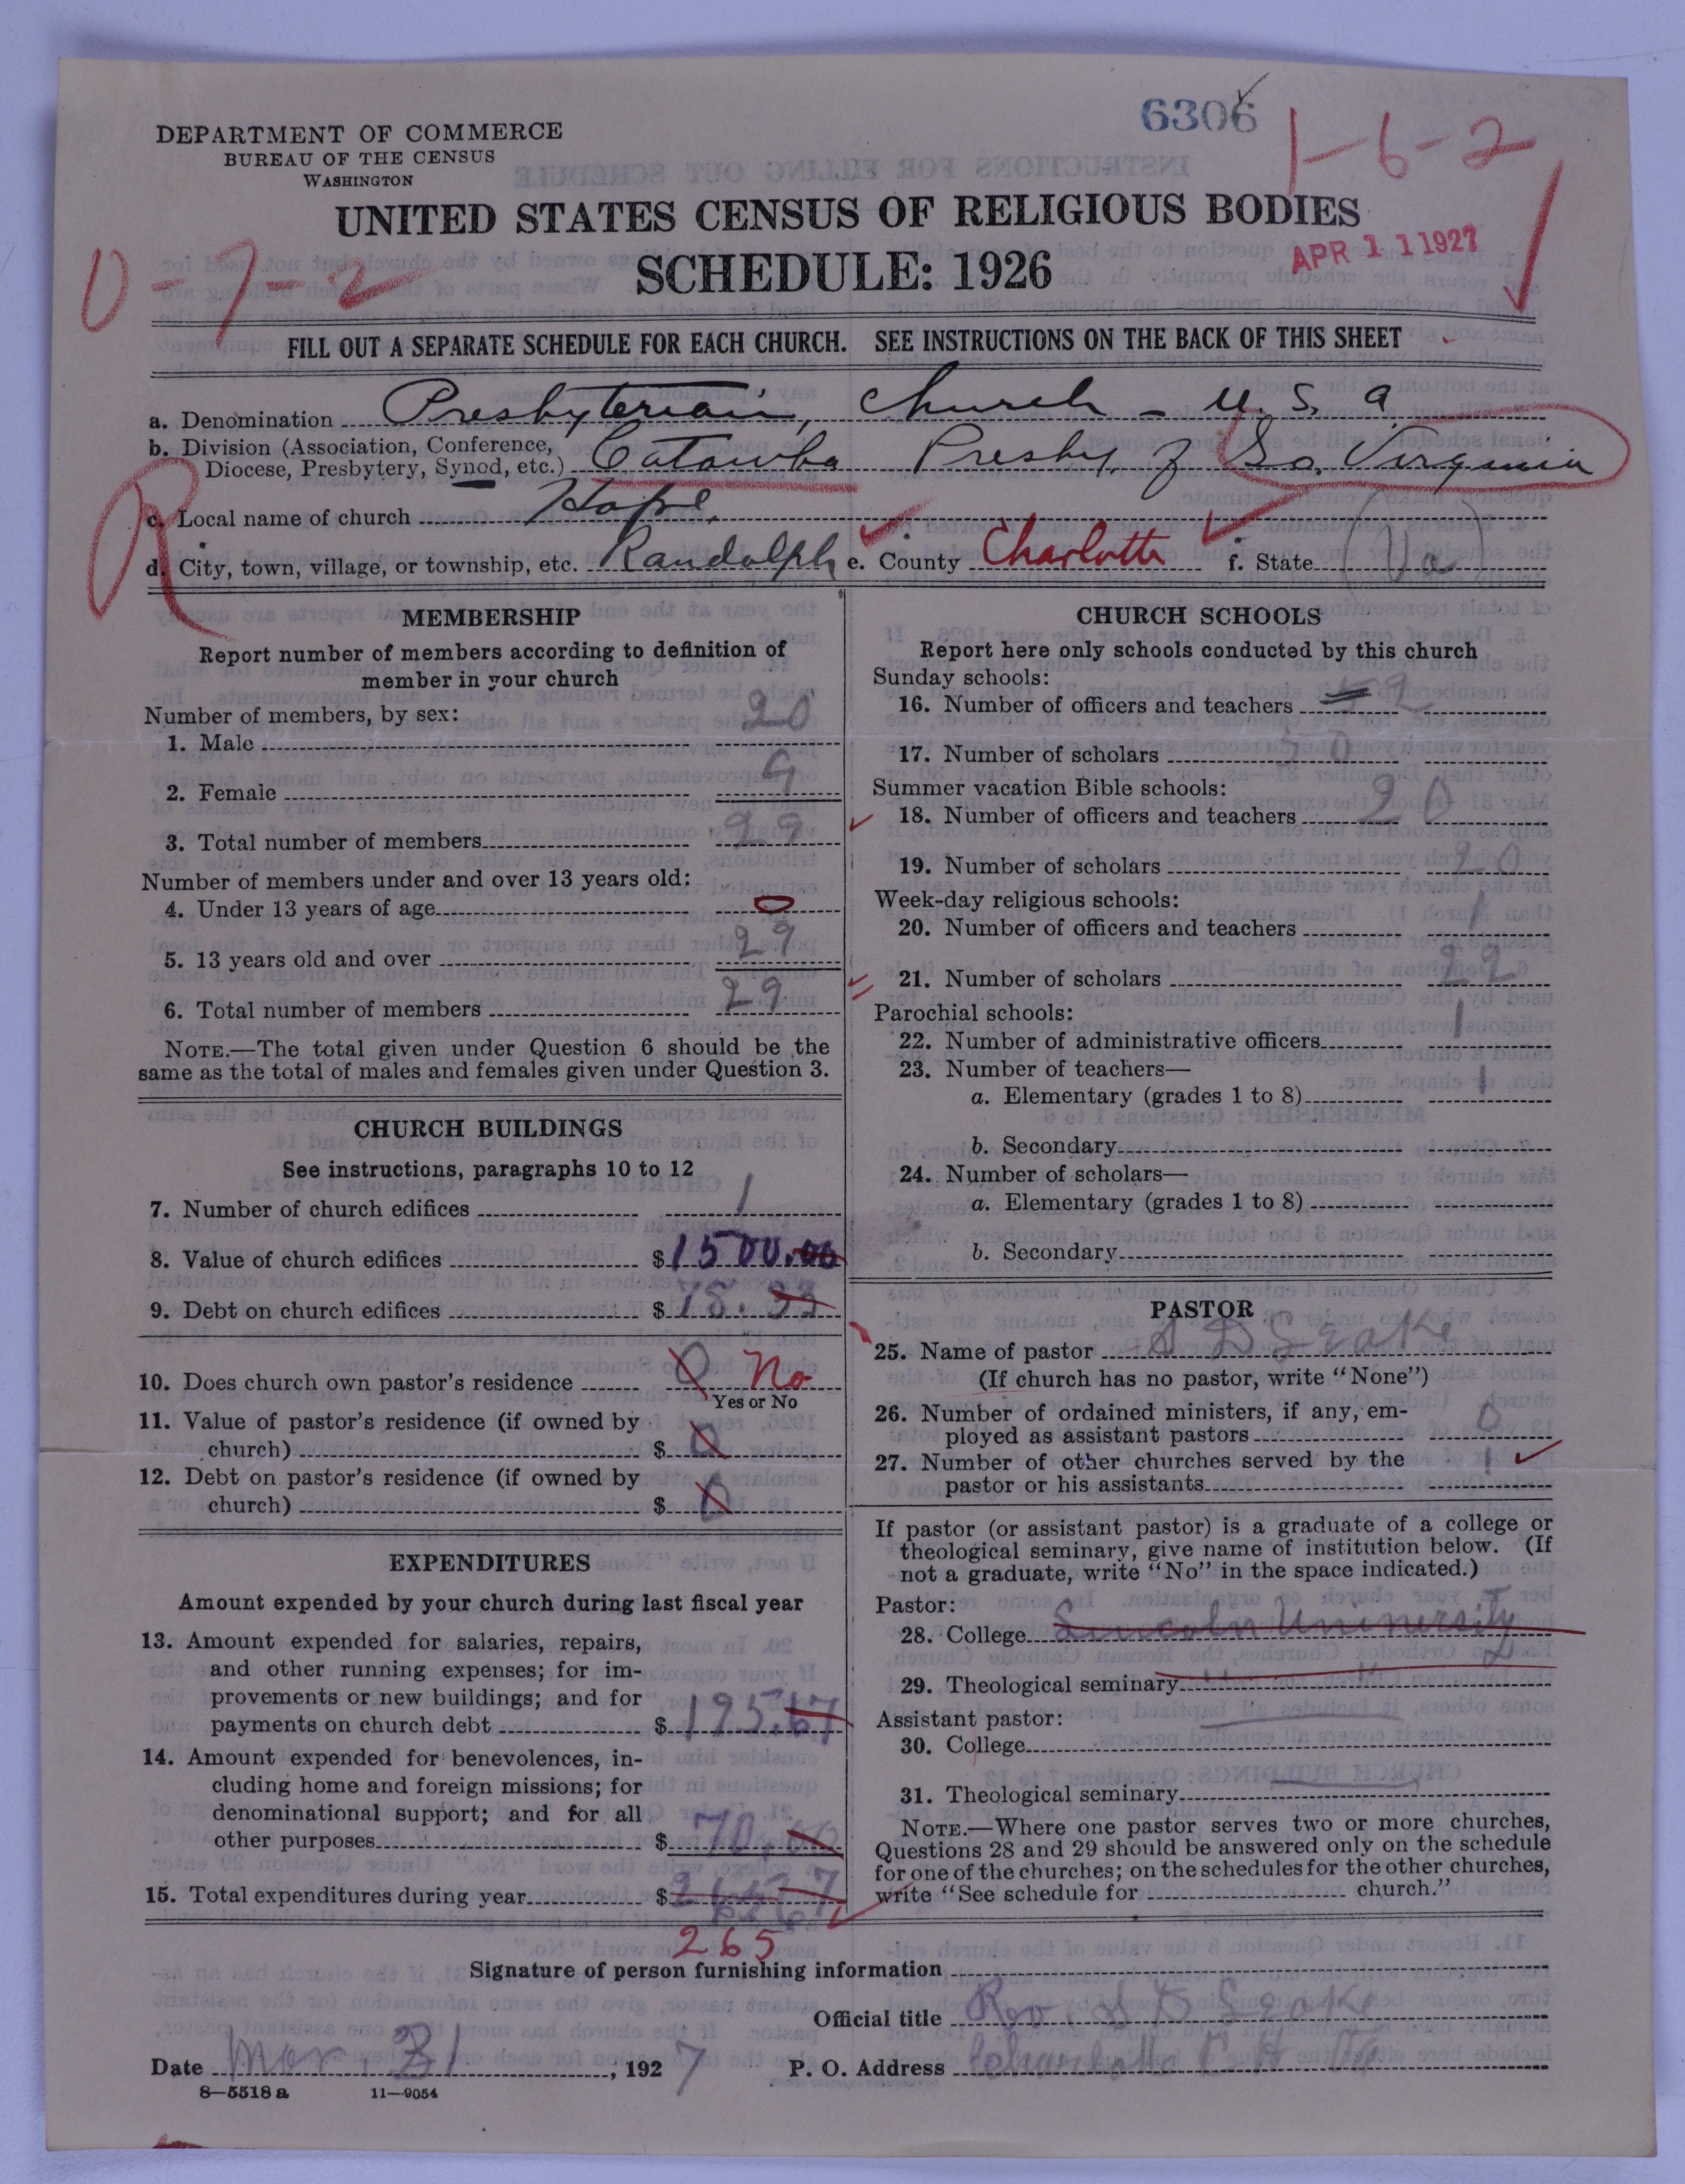 6306
1-6-2
DEPARTMENT OF COMMERCE
BUREAU OF THE CENSUS
WASHINGTON
UNITED STATES CENSUS OF RELIGIOUS BODIES
APR 11 1927
SCHEDULE: 1926
0-7-2
FILL OUT A SEPARATE SCHEDULE FOR EACH CHURCH. SEE INSTRUCTIONS ON THE BACK OF THIS SHEET
a. Denomination Presbyterian, Church - U. S. a
b. Division (Association, Conference,
Diocese, Presbytery, Synod, etc.) Catawba Presby. of So. Virginia
R
c. Local name of church Hope
d. City, town, village, or township, etc. Randolph e. County Charlotte f. State (Va)
MEMBERSHIP
Report number of members according to definition of
member in your church
Number of members, by sex:
1. Male 20
2. Female 9
3. Total number of members 29
Number of members under and over 13 years old:
4. Under 13 years of age 0
5. 13 years old and over 29
6. Total number of members 29
NOTE.—The total given under Question 6 should be the
same as the total of males and females given under Question 3.
CHURCH BUILDINGS
See instructions, paragraphs 10 to 12
7. Number of church edifices 1
8. Value of church edifices $1500.00
9. Debt on church edifices $78.93
10. Does church own pastor's residence 0 No
Yes or No
11. Value of pastor's residence (if owned by
church) $ 0
12. Debt on pastor's residence (if owned by
church) $ 0
EXPENDITURES
Amount expended by your church during last fiscal year
13. Amount expended for salaries, repairs,
and other running expenses; for im-
provements or new buildings; and for
payments on church debt $195.67
14. Amount expended for benevolences, in-
cluding home and foreign missions; for
denominational support; and for all
other purposes $70.00
15. Total expenditures during year $
265
CHURCH SCHOOLS
Report here only schools conducted by this church
Sunday schools:
16. Number of officers and teachers
17. Number of scholars
Summer vacation Bible schools:
18. Number of officers and teachers 20
19. Number of scholars 20
Week-day religious schools:
20. Number of officers and teachers 1
21. Number of scholars 22
Parochial schools:
22. Number of administrative officers 1
23. Number of teachers—
a. Elementary (grades 1 to 8) 1
b. Secondary
24. Number of scholars—
a. Elementary (grades 1 to 8)
b. Secondary
PASTOR
25. Name of pastor S D Leake
(If church has no pastor, write "None")
26. Number of ordained ministers, if any, em-
ployed as assistant pastors 0
27. Number of other churches served by the
pastor or his assistants 1
If pastor (or assistant pastor) is a graduate of a college or
theological seminary, give name of institution below. (If
not a graduate, write "No" in the space indicated.)
Pastor:
28. College Lincoln University
29. Theological seminary
Assistant pastor:
30. College
31. Theological seminary
NOTE.—Where one pastor serves two or more churches,
Questions 28 and 29 should be answered only on the schedule
for one of the churches; on the schedules for the other churches,
write "See schedule for church."
Signature of person furnishing information
Official title Rev. S D Leake
Date Mar. 31, 1927 P. O. Address Charlotte C. H. Va
8—5518 a 11—9054